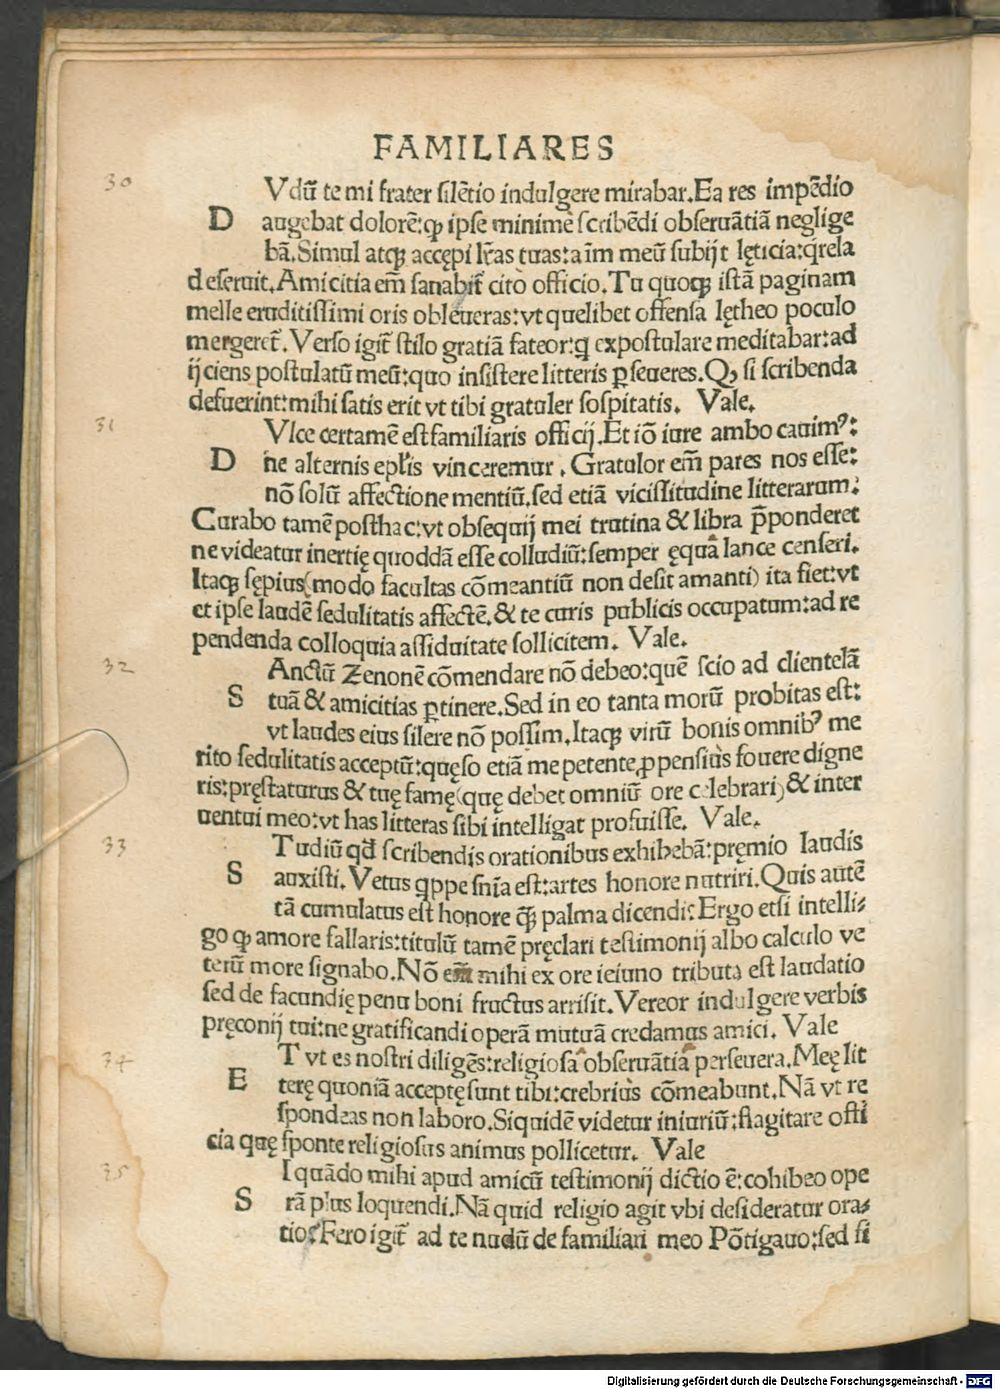 FAMILIARES
30
Vdū te mi frater silētio indulgere mirabar. Ea res impēdio
D augebat dolorē: ꝙ ipse minime scribēdi obseruātiā neglige
bā. Simul atqꝫ accępi lr̄as tuas: aīm meū subijt lęticia: q̄rela
deseruit. Amicitia em̄ sanabit̄ cito officio. Tu quoqꝫ istā paginam
melle eruditissimi oris obleueras: vt quelibet offensa lętheo poculo
mergeret̄. Verso igit̄ stilo gratiā fateor: q̄ expostulare meditabar: ad
ijciens postulatū meū: quo insistere litteris ꝑseueres. Qꝫ si scribenda
defuerint: mihi satis erit vt tibi gratuler sospitatis. Vale.
31
VIce certamē est familiaris officij. Et iō iure ambo cauimꝰ:
D ne alternis epl̄is vinceremur. Gratulor em̄ pares nos esse:
nō solū affectione mentiū. sed etiā vicissitudine litterarum.
Curabo tamē posthac: vt obsequij mei trutina & libra p̄ponderet
ne videatur inertię quoddā esse colludiū: semper ęqua lance censeri.
Itaqꝫ sępius (modo facultas cōmeantiū non desit amanti) ita fiet: vt
et ipse laudē sedulitatis affectē. & te curis publicis occupatum: ad re
pendenda colloquia assiduitate sollicitem. Vale.
32
Anctū Zenonē cōmendare nō debeo: quē scio ad clientelā
S tuā & amicitias ꝑtinere. Sed in eo tanta morū probitas est:
vt laudes eius silere nō possim. Itaqꝫ virū bonis omnibꝰ me
rito sedulitatis acceptū: quęso etiā me petente ꝓpensius fouere digne
ris: pręstaturus & tuę famę (quę debet omniū ore celebrari) & inter
uentui meo: vt has litteras sibi intelligat profuisse. Vale.
33
Tudiū qd̄ scribendis orationibus exhibebā: pręmio laudis
S auxisti. Vetus q̄ppe sn̄ia est: artes honore nutriri. Quis autē
tā cumulatus est honore q̄ꝫ palma dicendi: Ergo etsi intelli⸗
go ꝙ amore fallaris: titulū tamē pręclari testimonij albo calculo ve
terū more signabo. Nō em̄ mihi ex ore ieiuno tributa est laudatio
sed de facundię penu boni fructus arrisit. Vereor indulgere verbis
pręconij tui: ne gratificandi operā mutuā credamus amici. Vale
34
T vt es nostri diligēs: religiosa obseruātia perseuera. Meę lit
E terę quoniā acceptę sunt tibi: crebrius cōmeabunt. Nā vt re
spondeas non laboro. Siquidē videtur iniuriū: flagitare offi
cia quę sponte religiosus animus pollicetur. Vale
35
I quādo mihi apud amicū testimonij dictio ē: cohibeo ope
S rā plus loquendi. Nā quid religio agit vbi desideratur ora⸗
tio? Fero igit̄ ad te nudū de familiari meo Pōtigauo: sed si
Digitalisierung gefördert durch die Deutsche Forschungsgemeinschaft - DFG